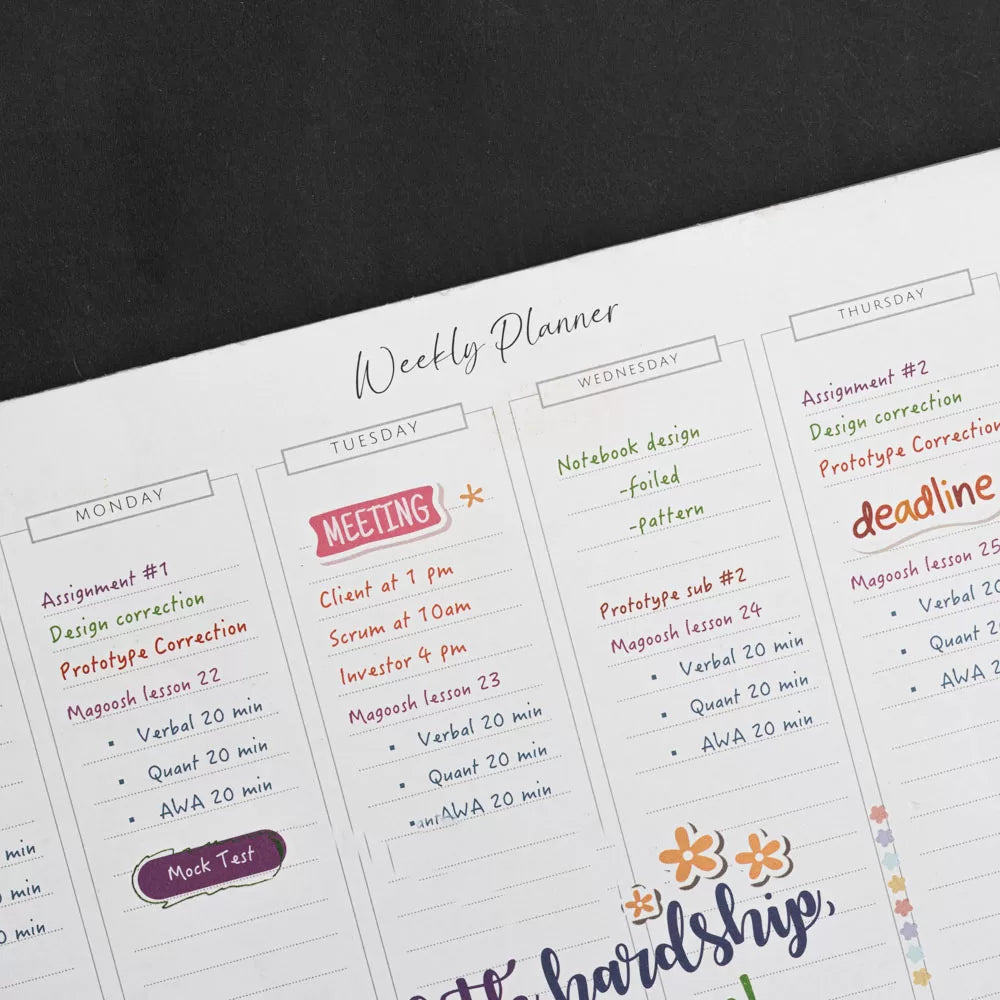 Weekly Planner
MONDAY
Assignment #1
Design correction
Prototype Correction
Magoosh lesson 22
Verbal 20 min
Quant 20 min
AWA 20 min
Mock Test
TUESDAY
MEETING
Client at 1 pm
Scrum at 10am
Investor 4 pm
Magoosh lesson 23
Verbal 20 min
Quant 20 min
AWA 20 min
WEDNESDAY
Notebook design
-foiled
-pattern
Prototype sub #2
Magoosh lesson 24
Verbal 20 min
Quant 20 min
AWA 20 min
hardship,
THURSDAY
Assignment #2
Design correction
Prototype Correction
deadline
Magoosh lesson 25
Verbal
Quant
AWA
min
min
min